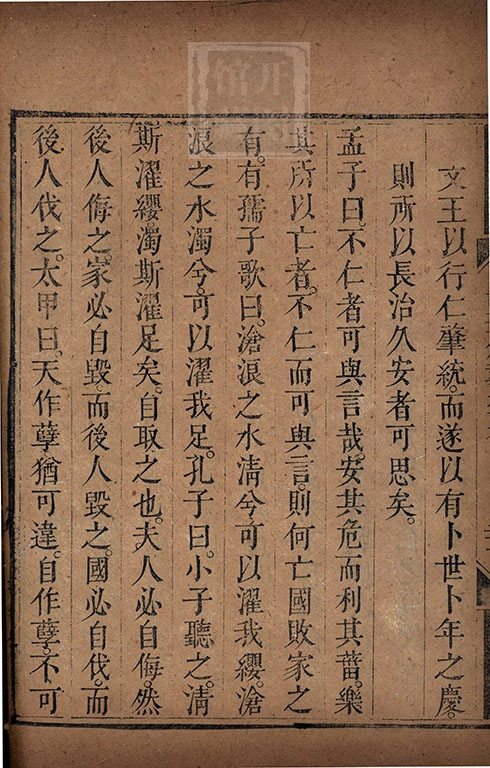 文王以行仁肇統。而遂以有卜世卜年之慶。
則所以長治久安者可思矣。
孟子曰不仁者可與言哉。安其危而利其菑。樂
其所以亡者。不仁而可與言。則何亡國敗家之
有。有孺子歌曰。滄浪之水淸兮可以濯我纓。滄
浪之水濁兮。可以濯我足。孔子曰。小子聽之。淸
斯濯纓濁斯濯足矣。自取之也。夫人必自侮。然
後人侮之。家必自毀而後人毀之。國必自伐。而
後人伐之。太甲曰。天作孽猶可違。自作孽。不可